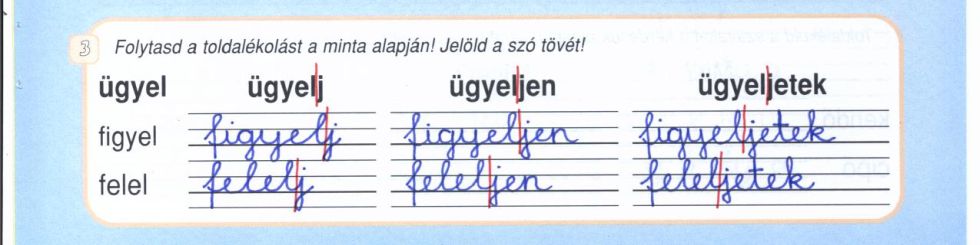 3 Folytasd a toldalékolást a minta alapján! Jelöld a szó tövét!
ügyel ügyel|j ügyel|jen ügyel|jetek
figyel figyel|j figyel|jen figyel|jetek
felel felel|j felel|jen felel|jetek